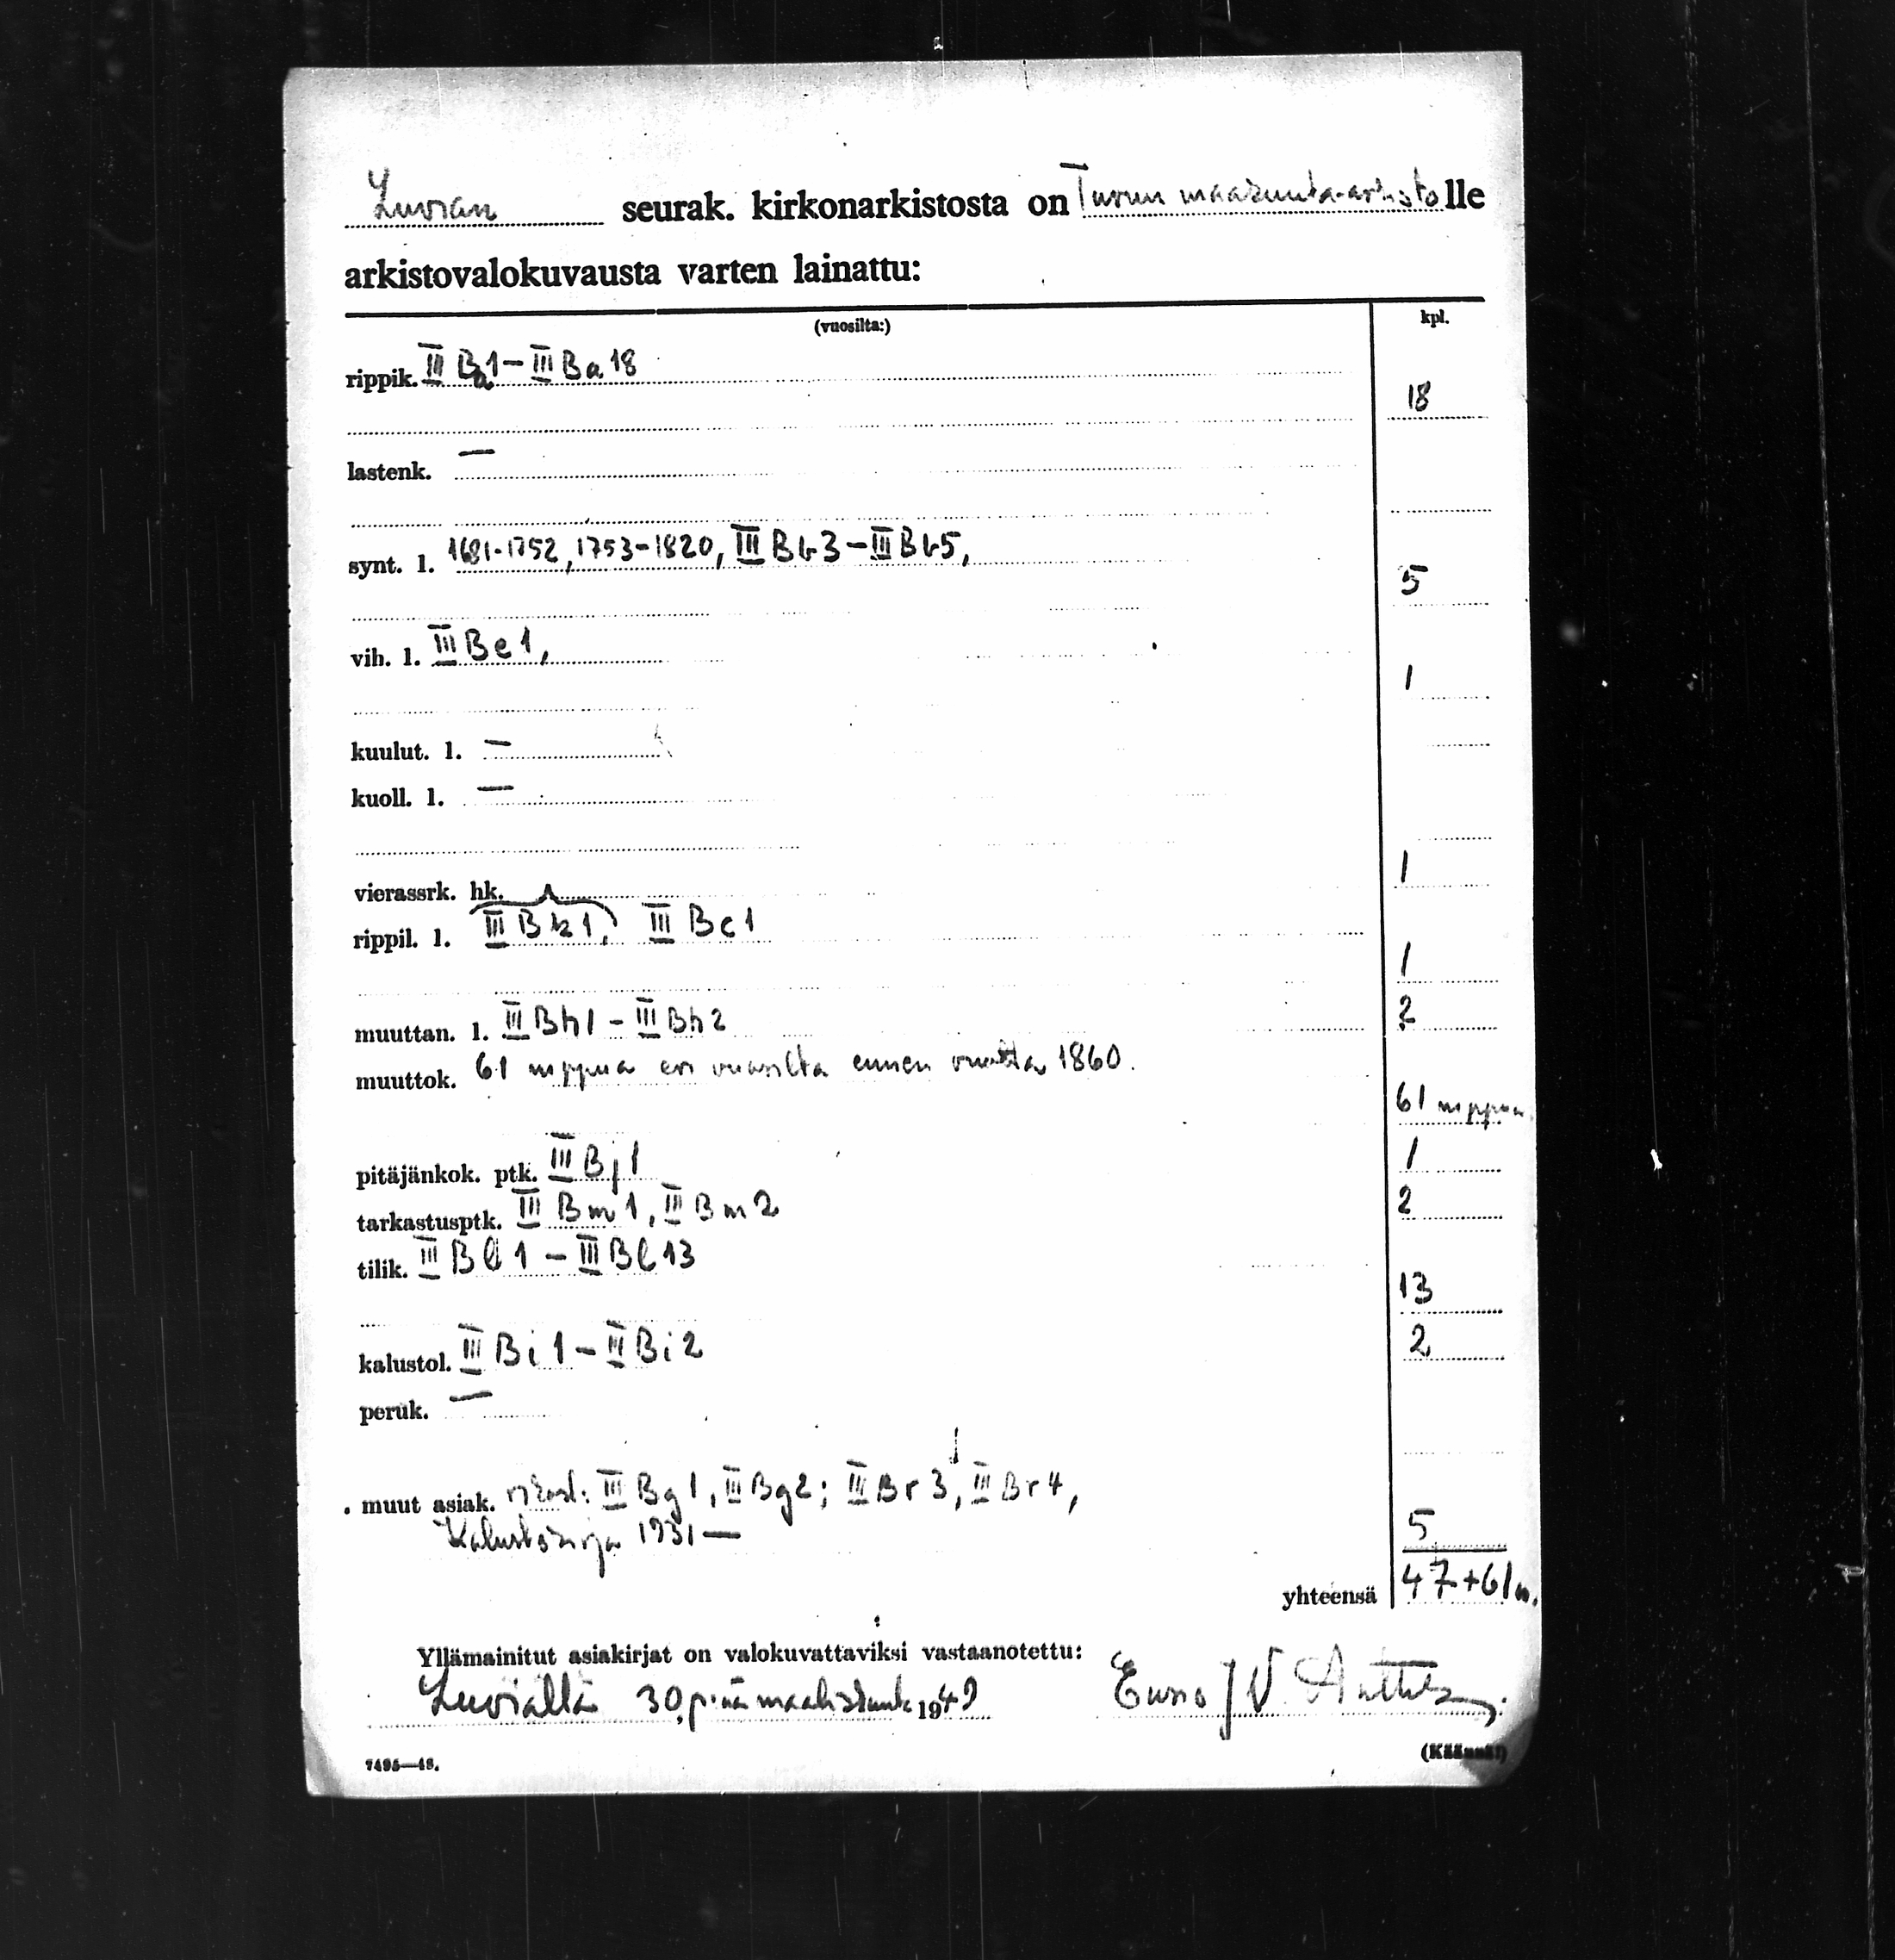 Luvian seurak. kirkonarkistosta on Turun maakunta-arkistolle
arkistovalokuvausta varten lainattu:
(vuosilta:) kpl.
rippik. III Ba1 – III Ba 18
18
lastenk. —
synt. l. 1681-1752, 1753-1820, III Bb3 – III Bb5,
5
vih. l. III Be1,
1
kuulut. l. —
kuoll. l. —
vierassrk. hk. 1
rippil. l. III Bk1, III Bc1
1
muuttan. l. III Bh1 – III Bh2 2
muuttok. 61 nippua eri vuosilta ennen vuotta 1860.
61 nippua
pitäjänkok. ptk. III Bj1 1
tarkastusptk. III Bm1, III Bm2 2
tilik. III Bl1 – III Bl13
13
kalustol. III Bi1 – III Bi2 2
peruk. —
muut asiak. III Bg1, III Bg2; III Br3, III Br4,
Kalustokirja 1931 —
5
yhteensä 47+61 n.
Yllämainitut asiakirjat on valokuvattaviksi vastaanotettu:
Luvialla 30 p:nä maaliskuuta 1949
7495—48. (Käännä!)